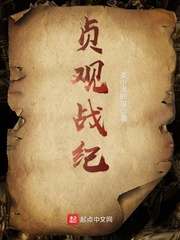 贞观战纪
著
起点中文网